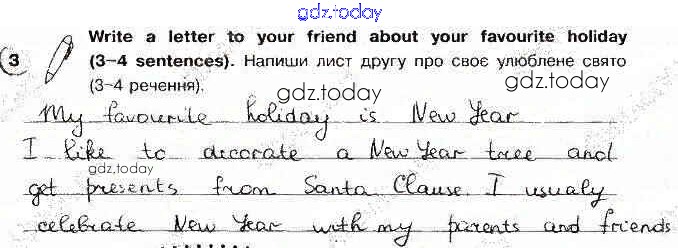 gdz.today
3 Write a letter to your friend about your favourite holiday
(3–4 sentences). Напиши лист другу про своє улюблене свято
(3–4 речення).
gdz.today
My favourite holiday is New Year
I like to decorate a New Year tree and
gdz.today
get presents from Santa Clause. I usualy
celebrate New Year with my parents and friends